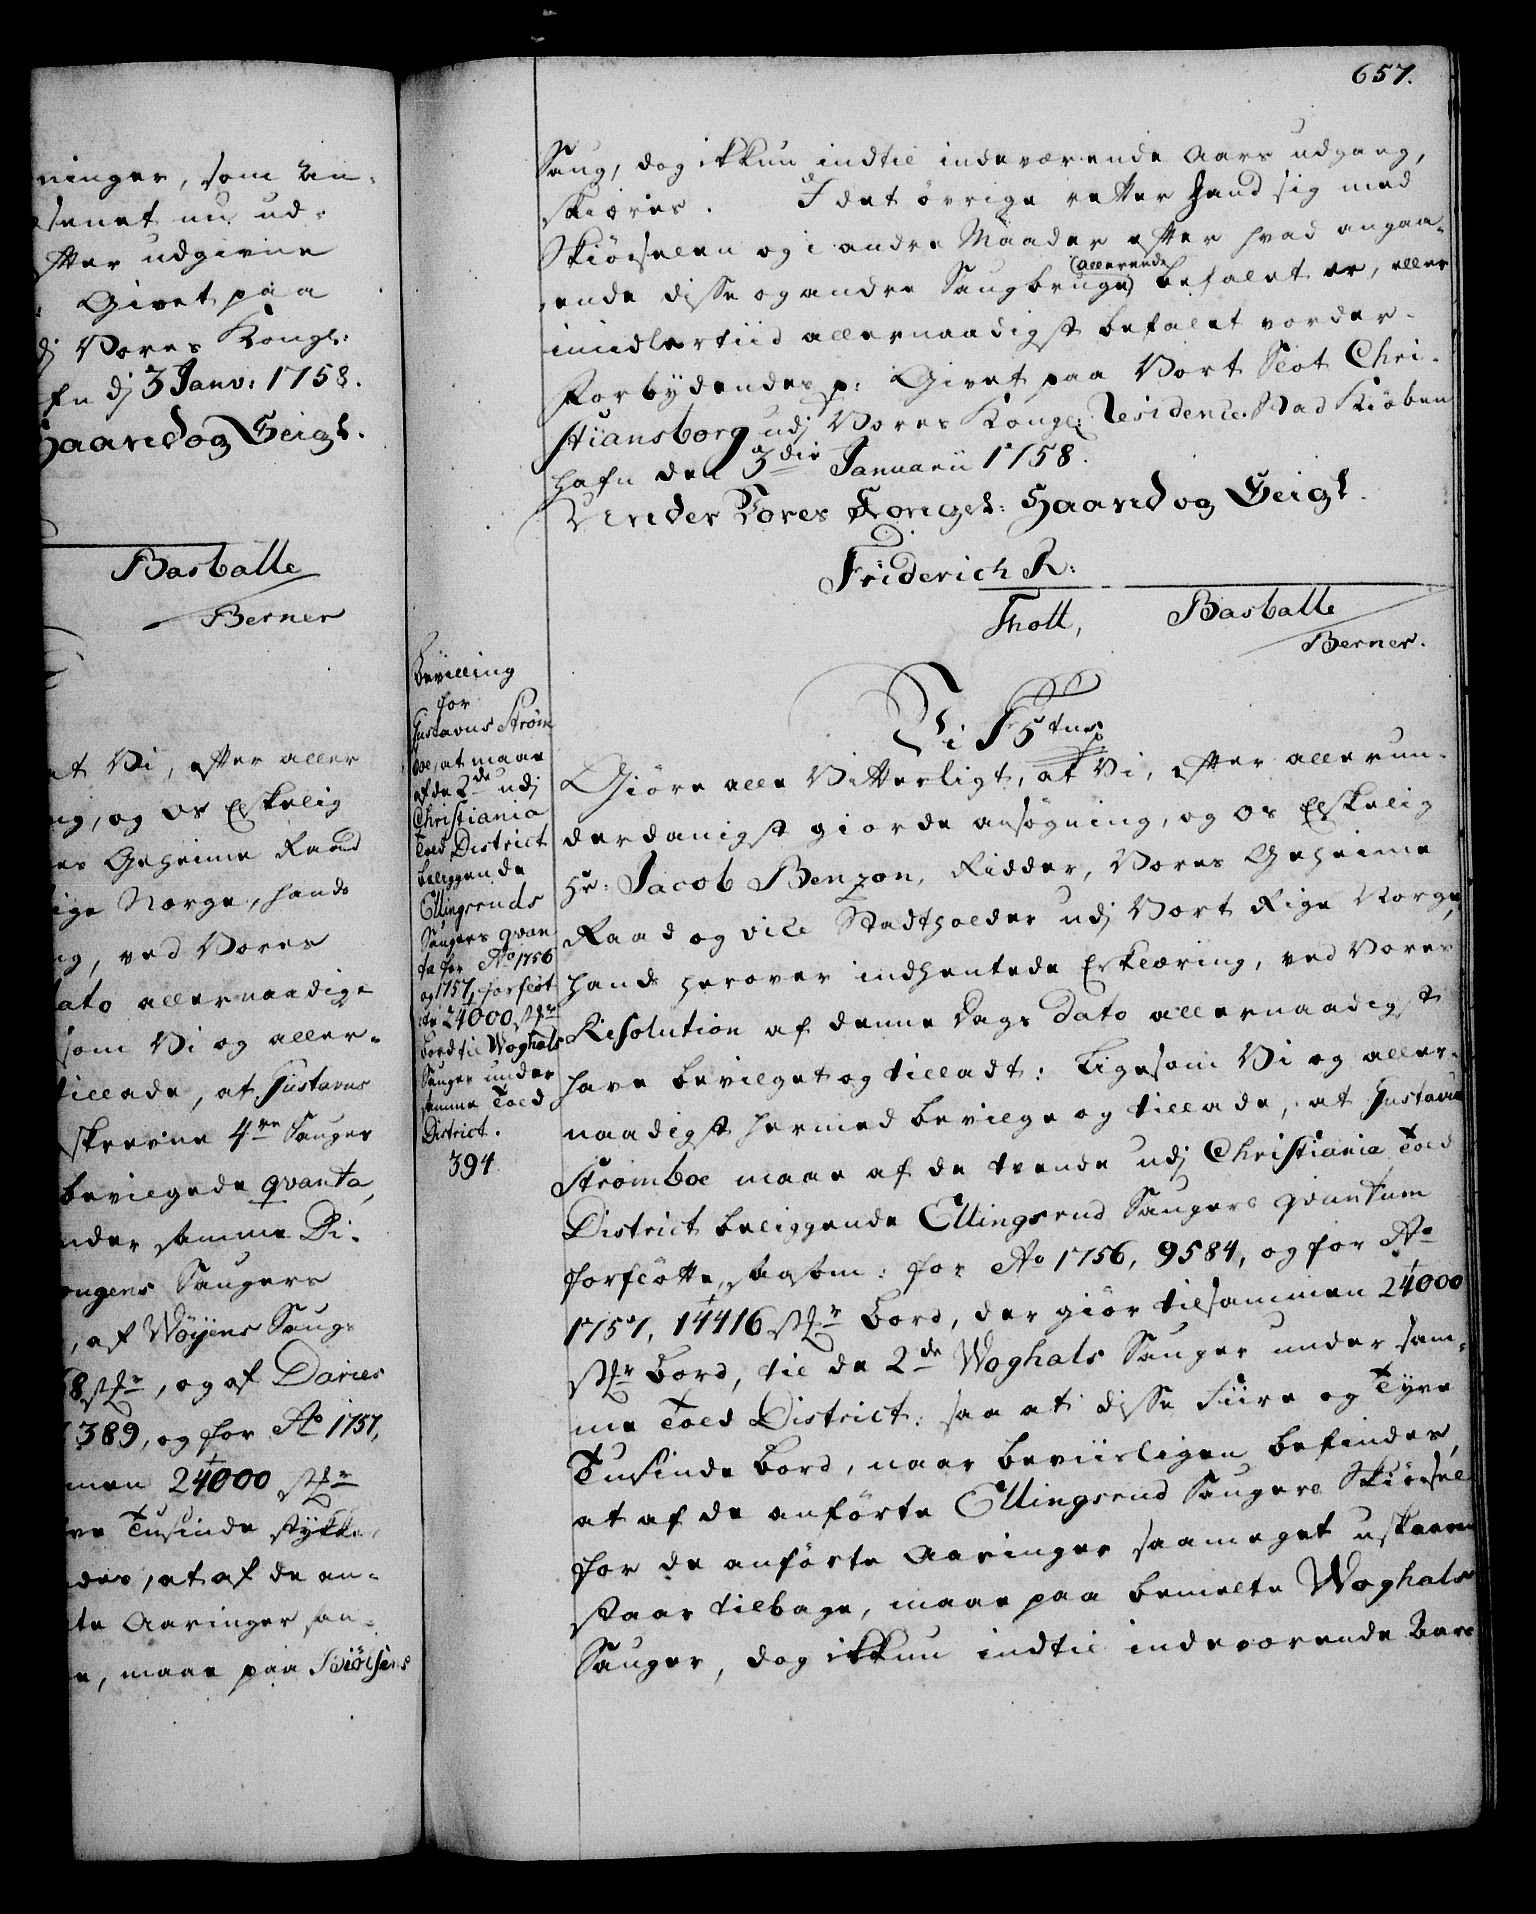 ninger, som An-
senet nu ud-
fter udgivne
Givet paa
dj Vores Kongl:
fn dj 3 Janv: 1758.
Haand og Seigl.
Basballe
Berner
at Vi, efter aller
ng, og Os Elskelig
res Geheime Raad
ige Norge, hands
ng, ved Vores
dato allernaadigst
som Vi og aller-
tillade, at Gustavus
skrevne 4re Sauger
bevilgede qvanta,
under samme Di-
ongens Saugers
, af Wøyens Saug-
8 stkr, og af Daries
389, og for Ao 1757,
men 24000 stkr
yve Tusinde stykker
des, at af de an-
te Aaringer saa-
e, maae paa Biölsens
657.
Saug, dog ikkun indtil indeværende Aars udgang,
skiæres. I det övrige retter Hand sig med
Skiörselen og i andre Maader efter hvad angaa-
ende disse og andre Saugbruge (allerende) befalet er, eller
imidlertiid allernaadigst befalet vorder.
Forbydendes p: Givet paa Vort Slot Chri-
stiansborg udj Vores Kongl: Residence Stad Kiöben
hafn den 3die Januarii 1758.
Under Vores Kongel: Haand og Seigl.
Friderich R:
Thott,
Basballe
Berner.
Bevilling
for
Gustavus Ström
boe, at maae
af de 2de udj
Christiania
Told District
beliggende
Ellingsruds
Saugers qvan
ta for Ao 1756
og 1757, forflöt
te 24000 stkr
Bord til Woghals
Sauger under
samme Told
District.
394
Vi F 5tus p
Giöre alle Vitterligt, at Vi, efter allerun-
derdanigst giorde ansögning, og Os Elskelig
Hr: Jacob Benzon, Ridder, Vores Geheime
Raad og vice Stadtholder udj Vort Rige Norge,
hands herover indhentede Erklæring, ved Vores
Resolution af denne Dags Dato allernaadigst
have bevilget og tilladt: Ligesom Vi og aller-
naadigst hermed bevilge og tillade, at Gustavus
Strömboe maae af de tvende udj Christiania Told
District beliggende Ellingsrud Saugers qvantum
forflötte, saasom: for Ao 1756, 9584, og for Ao
1757, 14416 stkr Bord, der giör tilsammen 24000
stkr Bord, til de 2de Woghals Sauger under sam-
me Told District: saa at disse Fiire og Tyve
Tusinde Bord, naar beviisligen befindes,
at af de anförte Ellingsrud Saugers Skiörsel
for de anförte Aaringer saameget uskaaren
staar tilbage, maae paa bemelte Woghals
Sauger, dog ikkun indtil indeværende Aars